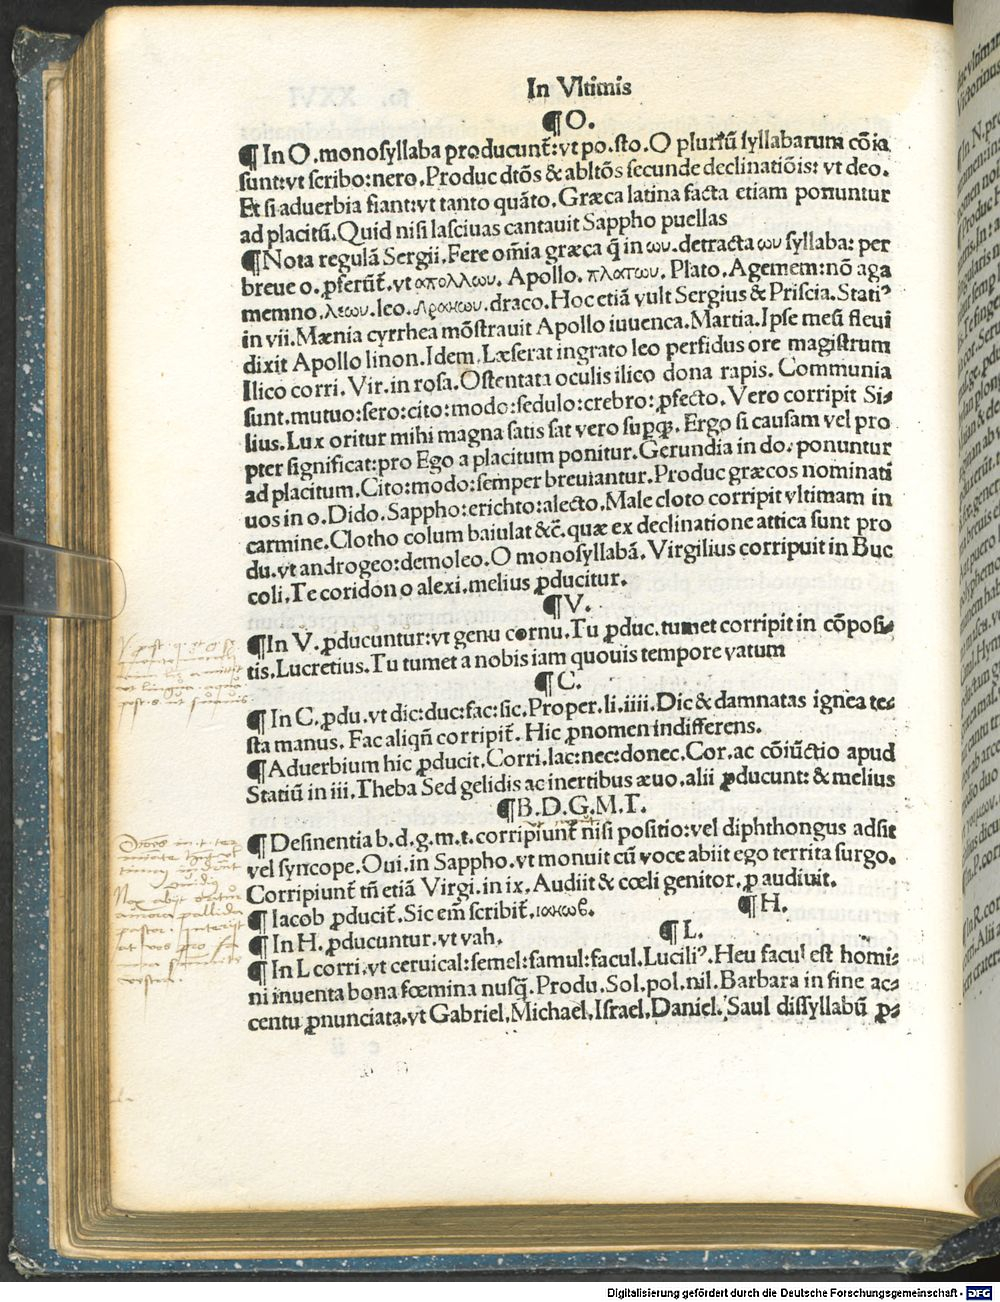 In Vltimis
¶O.
¶In O.monosyllaba producunt̄:vt po.sto.O pluriū syllabarum cōia
sunt:vt scribo:nero.Produc dtōs & abltōs secunde declinatiōis: vt deo.
Et si aduerbia fiant:vt tanto quāto.Græca latina facta etiam ponuntur
ad placitū.Quid nisi lasciuas cantauit Sappho puellas
¶Nota regulā Sergii.Fere om̄ia græca q̄ in ων.detracta ων syllaba: per
breue o.ꝓferūt̄.vt απολλων. Apollo. πλατων. Plato.Agemem:nō aga
memno.λεων.leo.δρακων.draco.Hoc etiā vult Sergius & Priscia.Statiꝰ
in vii.Mænia cyrrhea mōstrauit Apollo iuuenca.Martia.Ipse meū fleui
dixit Apollo linon.Idem.Læserat ingrato leo perfidus ore magistrum
Ilico corri.Vir.in rosa.Ostentata oculis ilico dona rapis. Communia
sunt.mutuo:sero:cito:modo:sedulo:crebro:ꝓfecto.Vero corripit Si⸗
lius.Lux oritur mihi magna satis sat vero suꝑꝙ.Ergo si causam vel pro
pter significat:pro Ego a placitum ponitur.Gerundia in do.ponuntur
ad placitum.Cito:modo:semper breuiantur.Produc græcos nominati
uos in o.Dido.Sappho:erichto:alecto.Male cloto corripit vltimam in
carmine.Clotho colum baiulat &c̄.quæ ex declinatione attica sunt pro
du.vt androgeo:demoleo.O monosyllabā.Virgilius corripuit in Buc
coli.Te coridon o alexi.melius ꝓducitur.
¶V.
¶In V.ꝓducuntur:vt genu cornu.Tu ꝓduc.tumet corripit in cōposi⸗
tis.Lucretius.Tu tumet a nobis iam quouis tempore vatum
¶C.
¶In C.ꝓdu.vt dic:duc:fac:sic.Proper.li.iiii.Dic & damnatas ignea te⸗
sta manus.Fac aliqn̄ corripit̄. Hic ꝓnomen indifferens.
¶Aduerbium hic ꝓducit.Corri.lac:nec:donec.Cor.ac cōiūctio apud
Statiū in iii.Theba Sed gelidis ac inertibus æuo.alii ꝓducunt: & melius
¶B.D.G.M.T.
¶Desinentia b.d.g.m.t.corripiunt̄ nisi positio:vel diphthongus adsit
vel syncope.Oui.in Sappho.vt monuit cū voce abiit ego territa surgo.
Corripiunt̄ tn̄ etiā Virgi.in ix.Audiit & cœli genitor.ꝓ audiuit.
¶Iacob ꝓducit̄.Sic em̄ scribit̄.ιακωβ. ¶H.
¶In H.ꝓducuntur.vt vah. ¶L.
¶In L corri.vt ceruical:semel:famul:facul.Luciliꝰ.Heu facul est homi⸗
ni inuenta bona fœmina nusq̄.Produ.Sol.pol.nil.Barbara in fine ac⸗
centu ꝓnunciata.vt Gabriel.Michael.Israel.Daniel.Saul dissyllabū ꝓ⸗
Digitalisierung gefördert durch die Deutsche Forschungsgemeinschaft - DFG